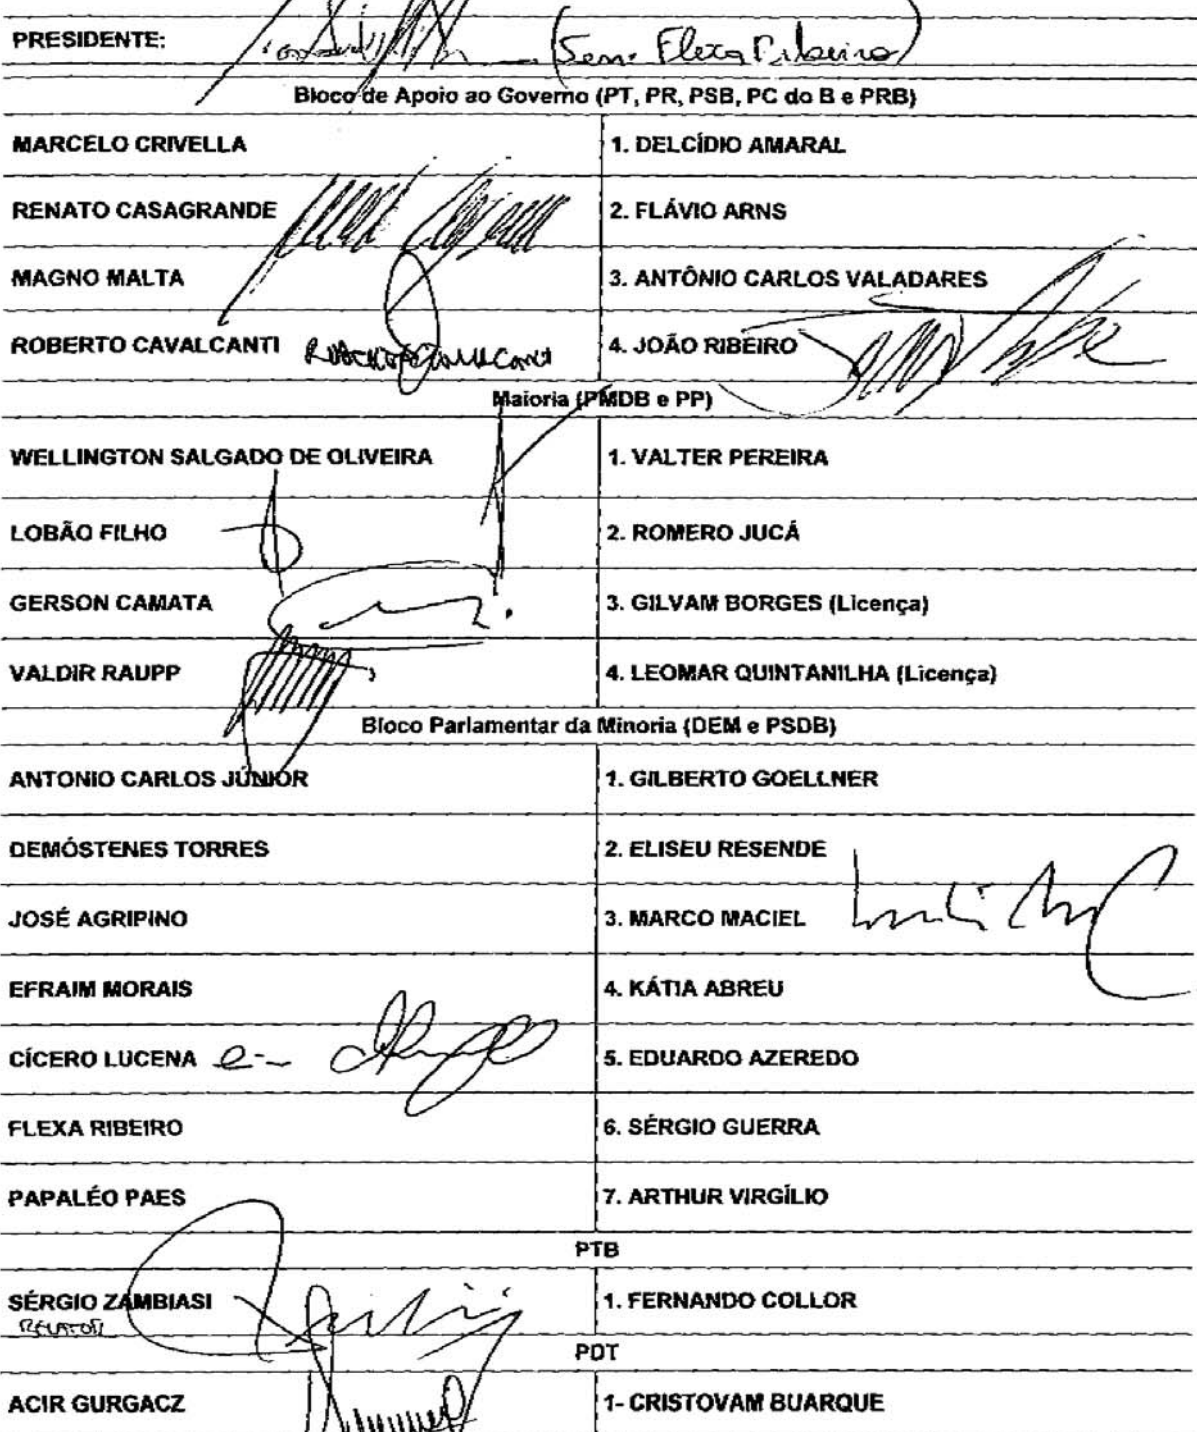 PRESIDENTE: (Sen. Flexa Ribeiro)
Bloco de Apoio ao Governo (PT, PR, PSB, PC do B e PRB)
MARCELO CRIVELLA 1. DELCÍDIO AMARAL
RENATO CASAGRANDE 2. FLÁVIO ARNS
MAGNO MALTA 3. ANTÔNIO CARLOS VALADARES
ROBERTO CAVALCANTI ROBERTO CAVALCANTI 4. JOÃO RIBEIRO
Maioria (PMDB e PP)
WELLINGTON SALGADO DE OLIVEIRA 1. VALTER PEREIRA
LOBÃO FILHO 2. ROMERO JUCÁ
GERSON CAMATA 3. GILVAM BORGES (Licença)
VALDIR RAUPP 4. LEOMAR QUINTANILHA (Licença)
Bloco Parlamentar da Minoria (DEM e PSDB)
ANTONIO CARLOS JÚNIOR 1. GILBERTO GOELLNER
DEMÓSTENES TORRES 2. ELISEU RESENDE
JOSÉ AGRIPINO 3. MARCO MACIEL
EFRAIM MORAIS 4. KÁTIA ABREU
CÍCERO LUCENA 5. EDUARDO AZEREDO
FLEXA RIBEIRO 6. SÉRGIO GUERRA
PAPALÉO PAES 7. ARTHUR VIRGÍLIO
PTB
SÉRGIO ZAMBIASI 1. FERNANDO COLLOR
RELATOR
PDT
ACIR GURGACZ 1- CRISTOVAM BUARQUE